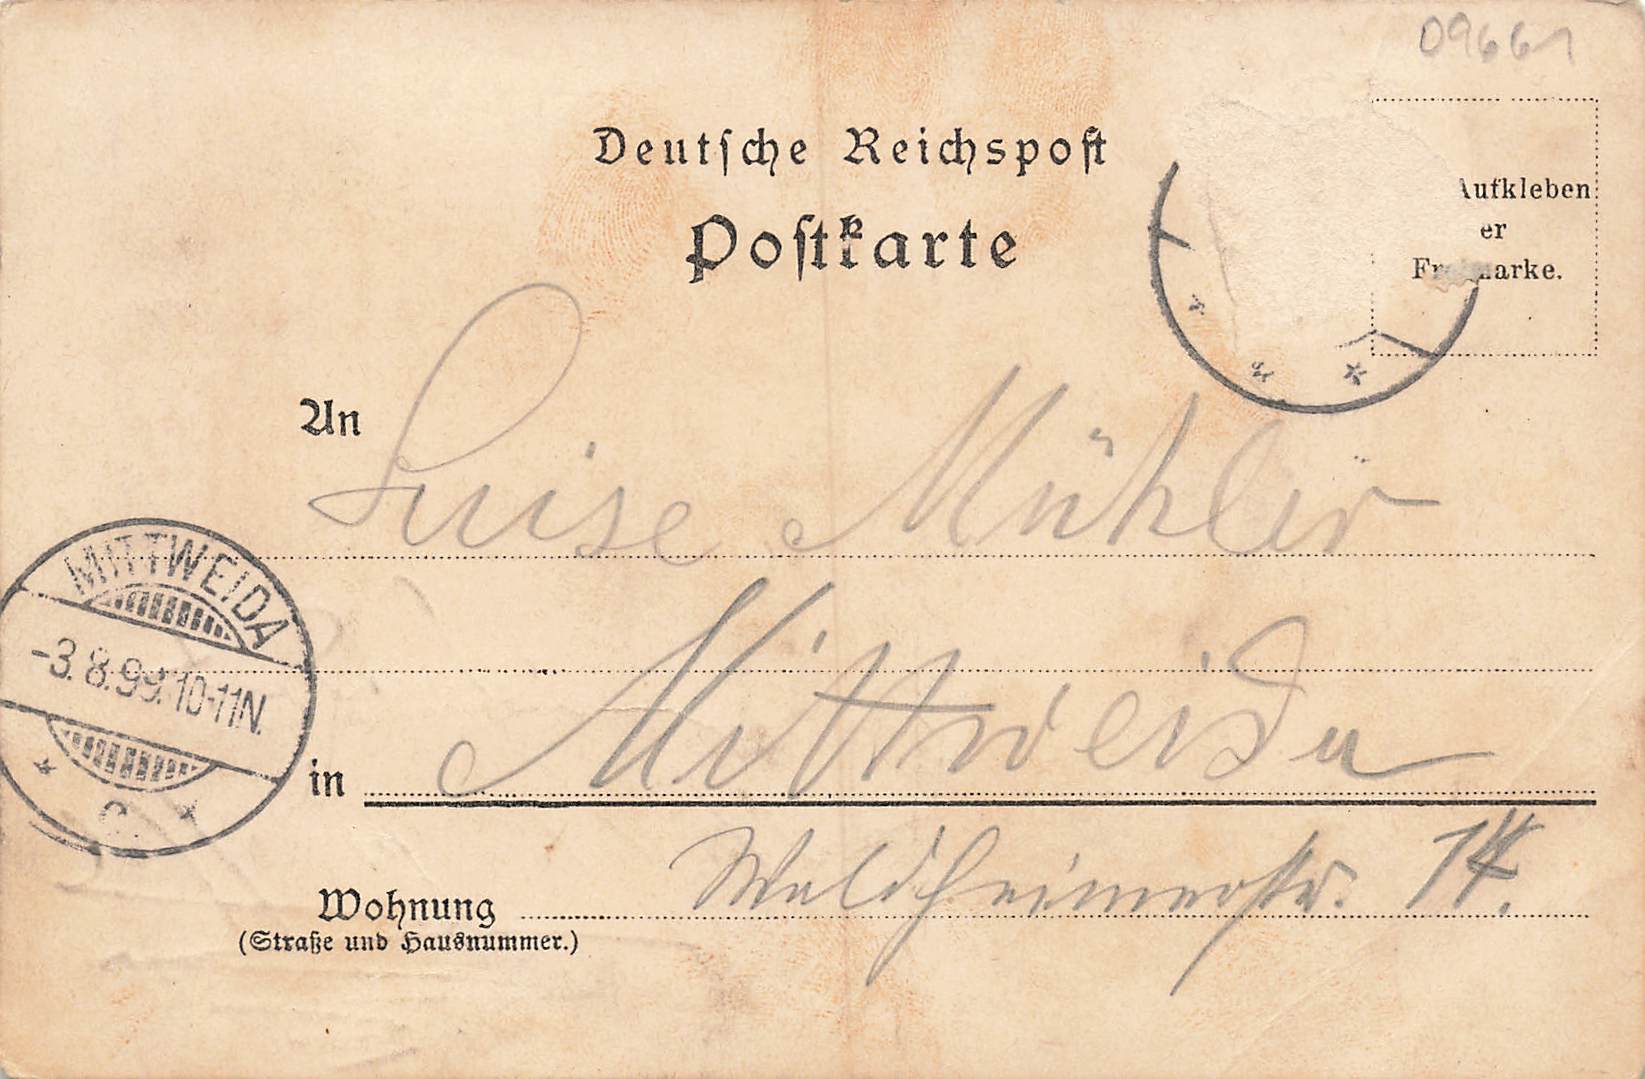 09661
Deutsche Reichspost
Postkarte
Aufkleben
er
Freimarke.
An Luise Mühler
MITTWEIDA
-3.8.99.10-11N.
* c. *
in Mittweida
Wohnung Waldheimerstr. 14.
(Straße und Hausnummer.)